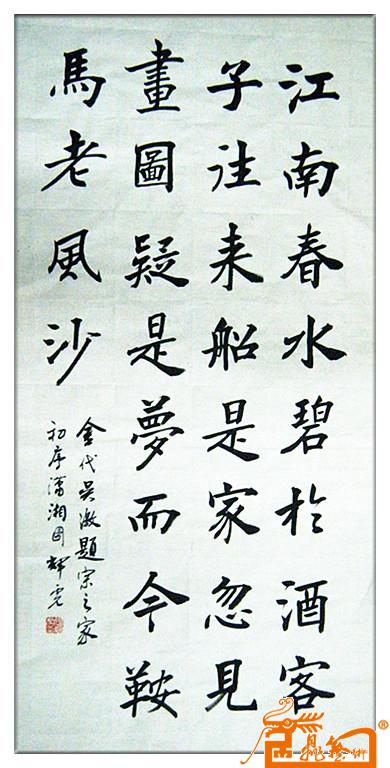 江南春水碧於酒客
子往来船是家忽見
畫圖疑是夢而今鞍
馬老風沙
金代吴激題宗之家
初序瀟湘图